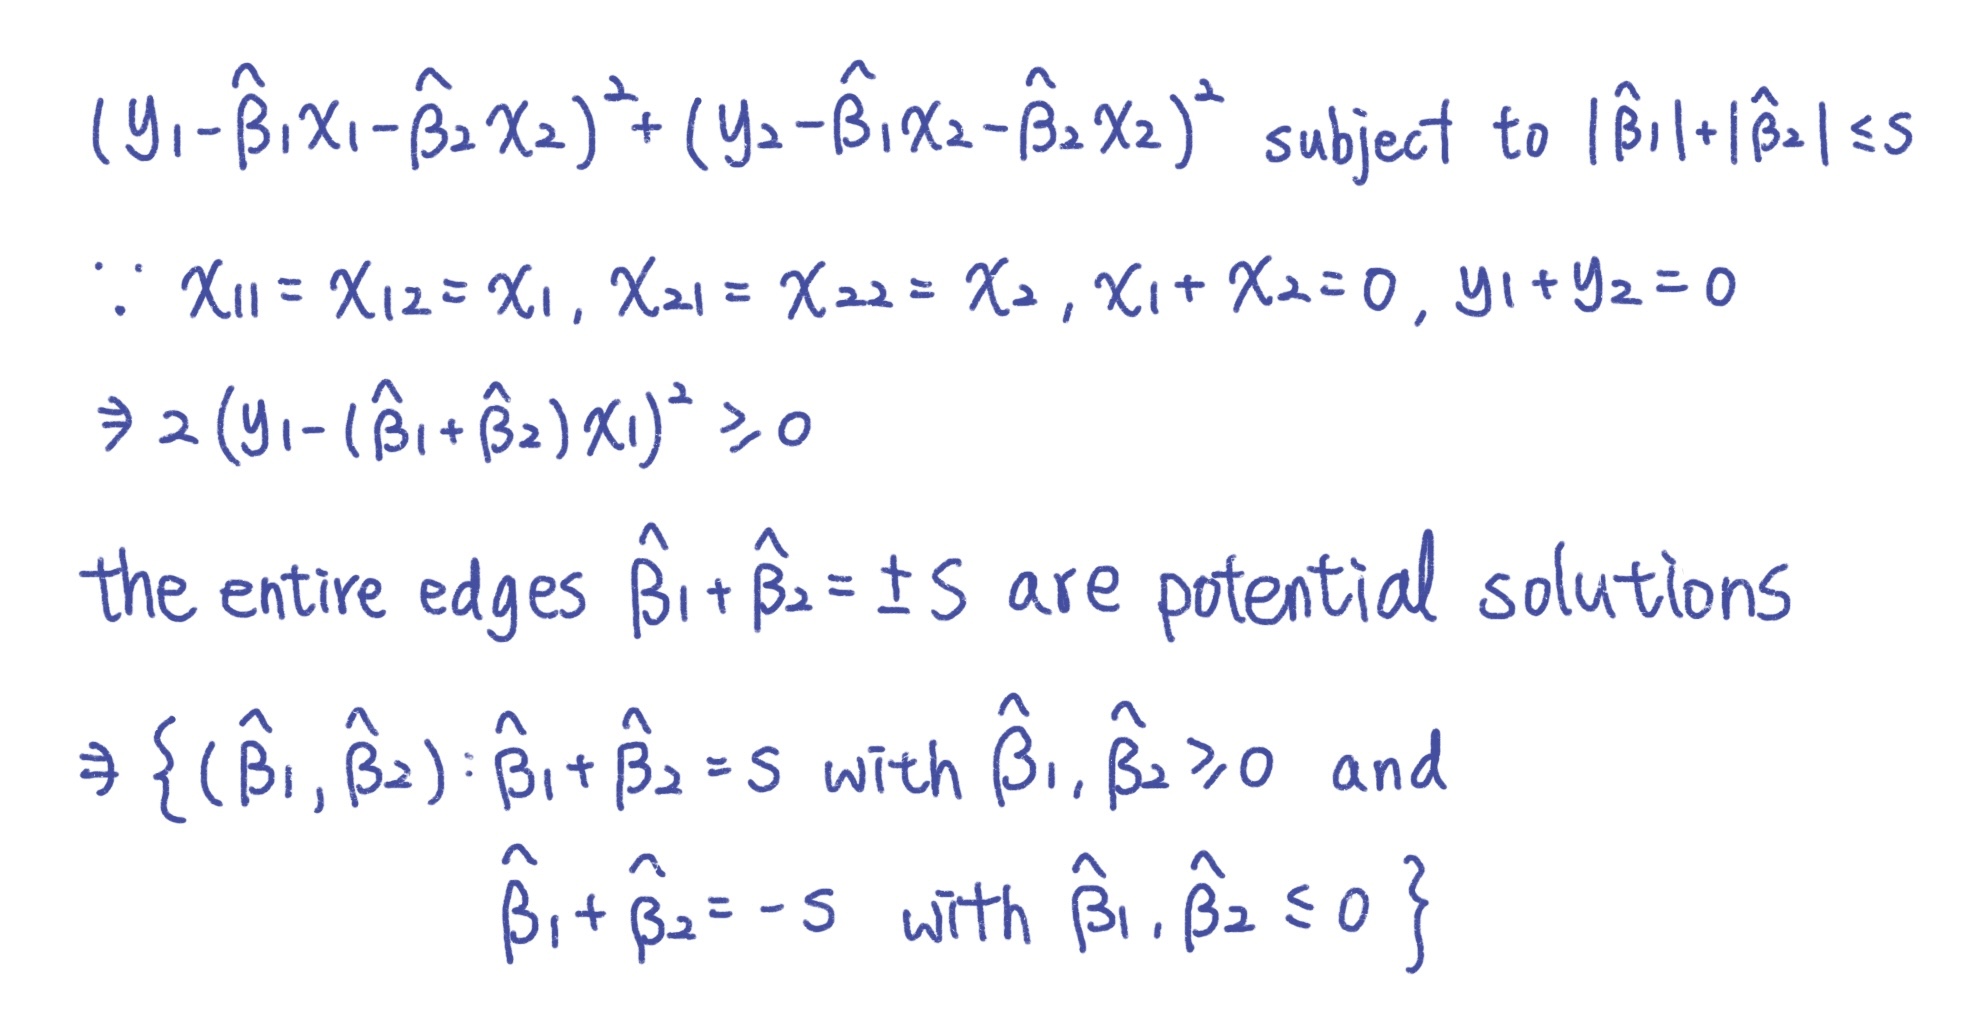 (y₁-β̂₁x₁-β̂₂x₂)²+(y₂-β̂₁x₂-β̂₂x₂)² subject to |β̂₁|+|β̂₂|≤s
∵ x₁₁=x₁₂=x₁, x₂₁=x₂₂=x₂, x₁+x₂=0, y₁+y₂=0
⇒ 2(y₁-(β̂₁+β̂₂)x₁)²≥0
the entire edges β̂₁+β̂₂=±s are potential solutions
⇒ {(β̂₁,β̂₂):β̂₁+β̂₂=s with β̂₁,β̂₂≥0 and
β̂₁+β̂₂=-s with β̂₁,β̂₂≤0}